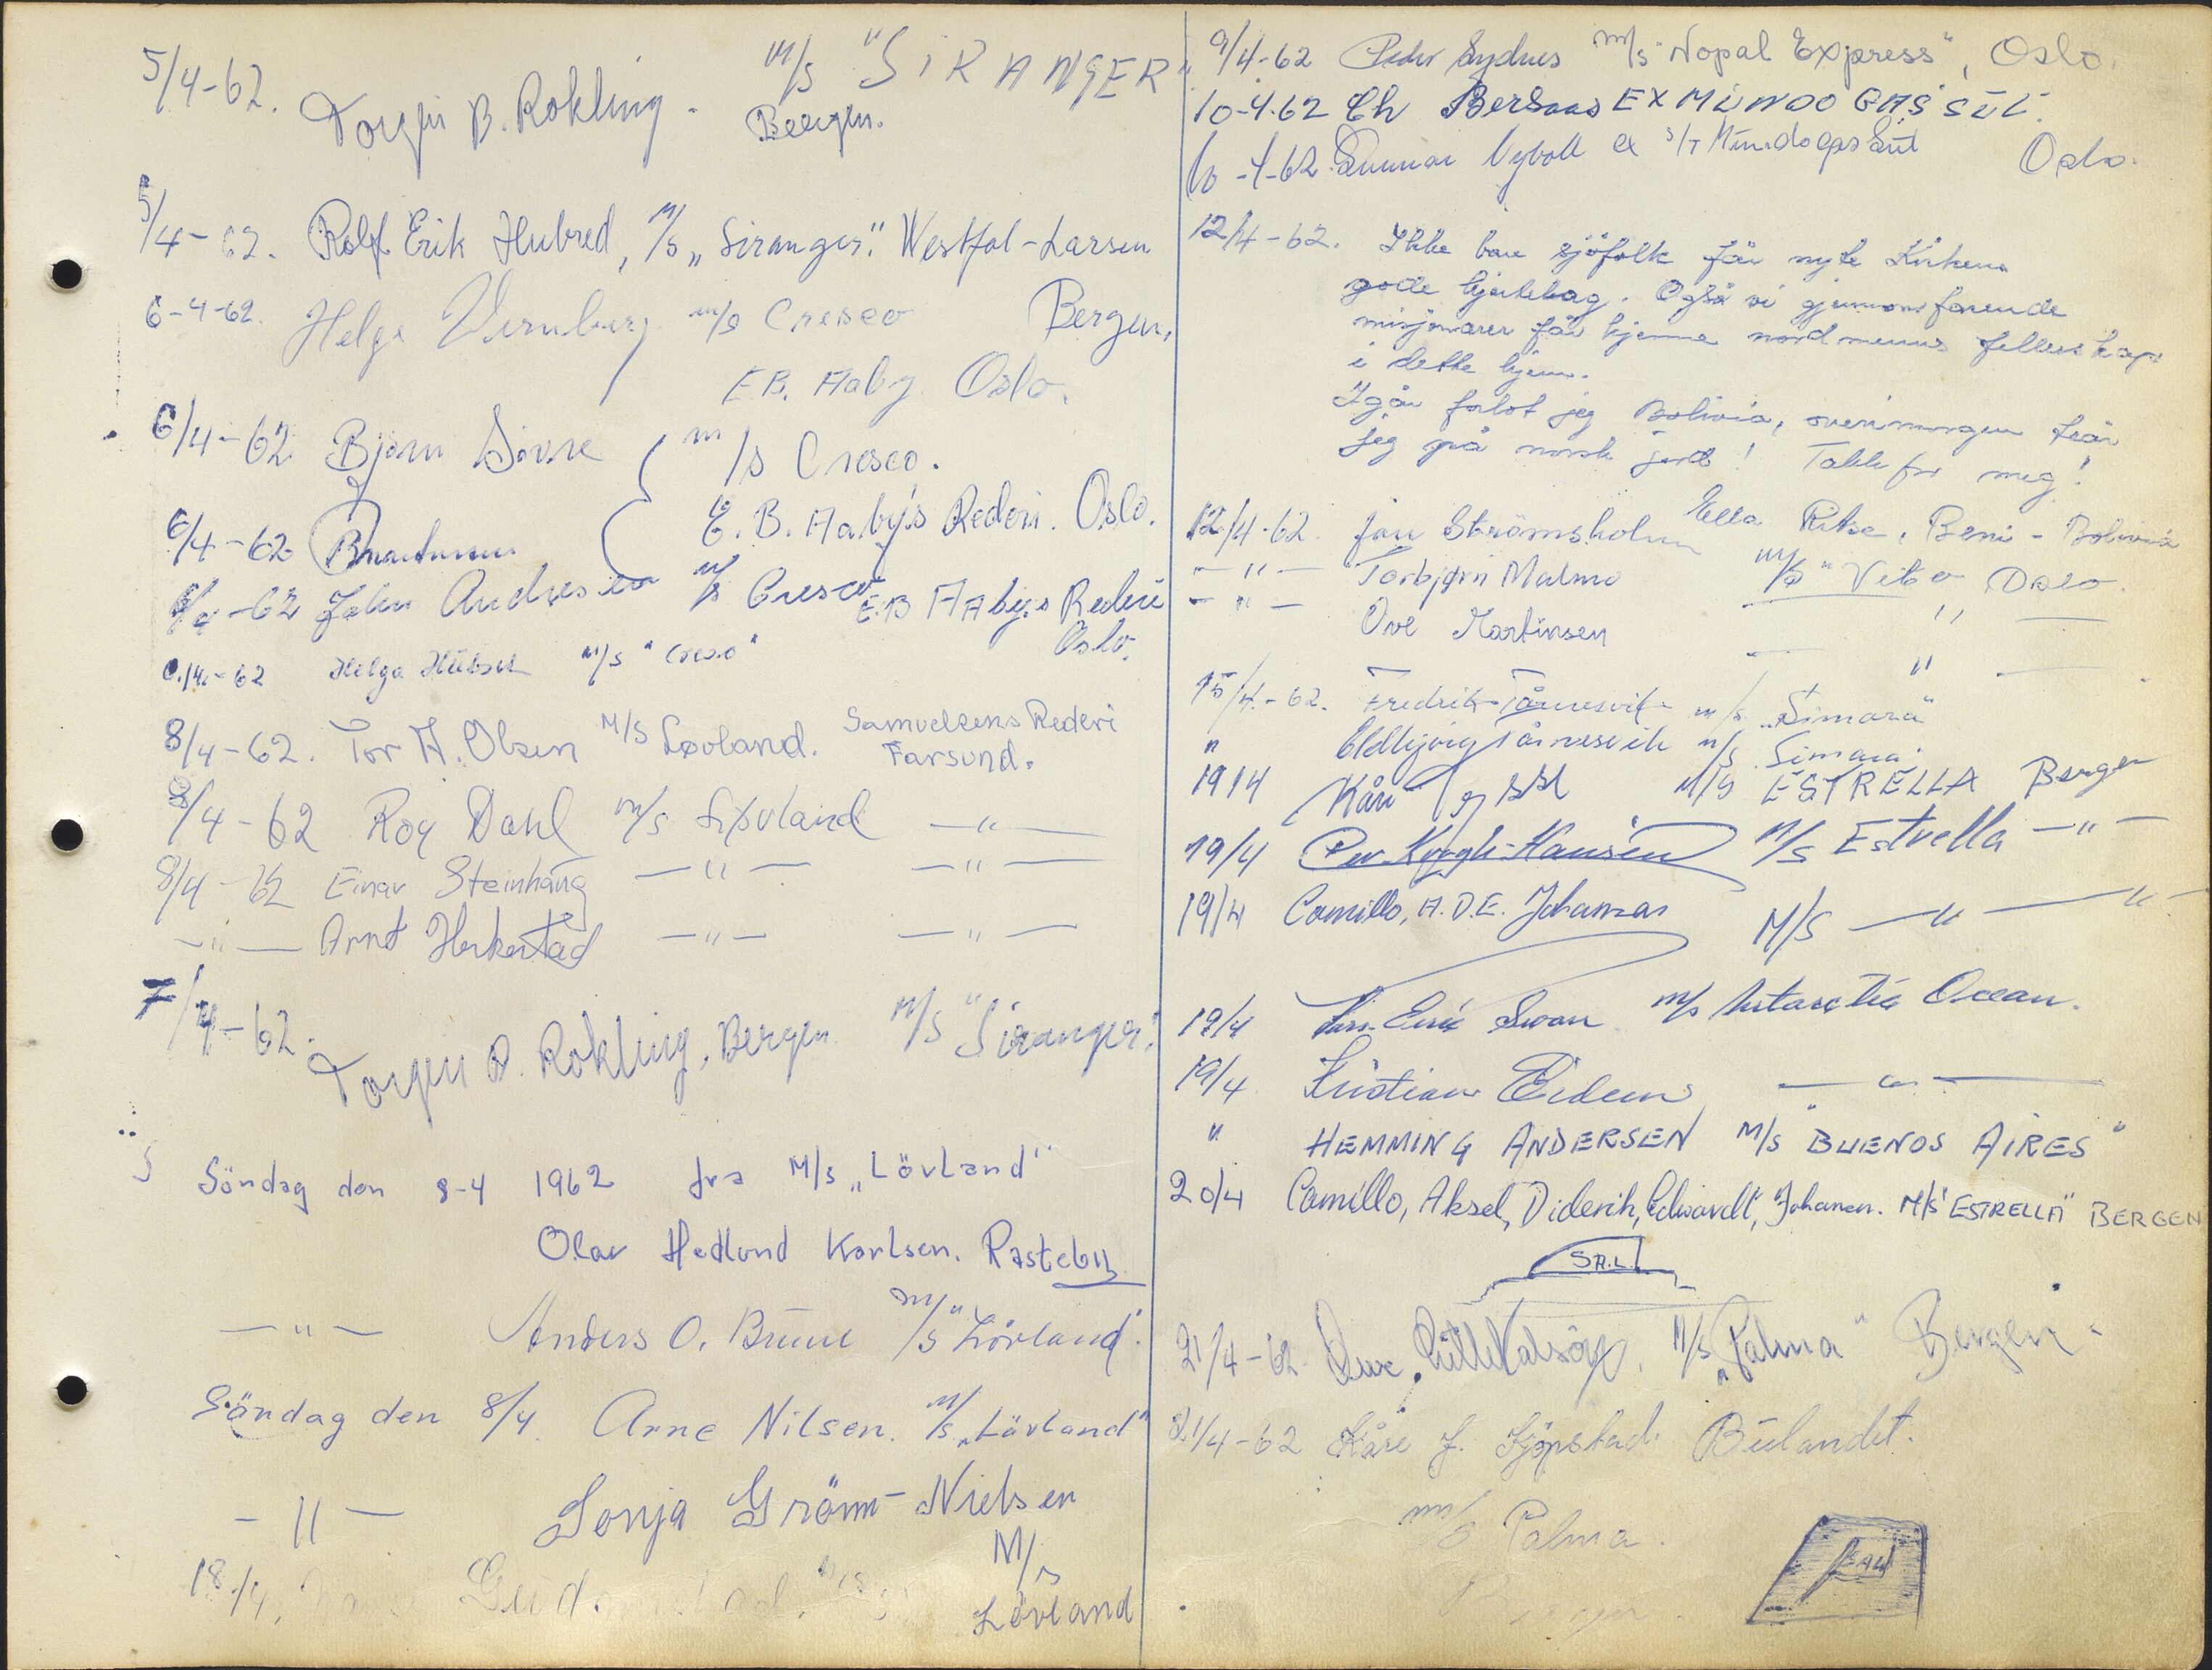 5/4-62. Torgeir B. Rokling. M/S "SIRANGER"
Bergen.
5/4-62. Rolf Erik Hubred, M/S „Siranger". Westfal-Larsen
Bergen,
6-4-62. Helge m/s Cresco
E.B. Aaby Oslo.
6/4-62 Bjørn m/s Cresco.
6/4-62 E.B. Aaby's Rederi. Oslo.
6/4-62 John Andresen m/s Cresco E.B. Aaby's Rederi
Oslo.
6/4-62 Helga m/s "Cresco"
8/4-62. Tor A. Olsen M/S Løvland. Samuelsens Rederi
Farsund.
8/4-62 Roy Dahl m/s Løvland —"—
8/4-62 Einar Steinhaug —"— —"—
—"— Arnt —"— —"—
7/4-62. Torgeir B. Rokling, Bergen M/S "Siranger".
Söndag den 8-4 1962 fra M/s „Lövland"
Olav Hedlund Karlsen.
—"— Anders O. m/s "Lövland".
Söndag den 8/4. Arne Nilsen. M/s „Lövland"
-"- Sonja Grönn-Nielsen
M/s
Lövland
18/4.
9/4-62 Peder Sydnes m/s "Nopal Express", Oslo.
10-4-62 Ch Bersaas EX MUNDO GAS SUL.
10-4-62 Gunnar ex s/T Mundogas Sul Oslo.
12/4-62. Ikke bare sjöfolk får nyte Kirkens
gode hjertelag. Også vi gjennomfarende
misjonærer får kjenne nordmenns fellesskap
i dette hjem.
Igår forlot jeg Bolivia, overimorgen står
jeg på norsk jord! Takk for meg!
Ella Beni - Bolivia
12/4-62. Jan Strömsholm m/s "Vito" Oslo.
—"— Torbjørn Malmo — " —
—"— Ove Martinsen — " —
15/4.-62. Fredrik Tånnesvik m/s „Simara"
" Tånnesvik m/s Simara.
19/4 Kåre M/S ESTRELLA Bergen
19/4 Per Krogh-Hansen M/S Estrella —"—
19/4 Camillo, A.D.E. Johansen M/S —"— —"—
19/4 Erik Swan m/s Antarctic Ocean.
19/4 Kristian —"—
" HEMMING ANDERSEN M/S "BUENOS AIRES"
20/4 Camillo, Aksel, Diderik, Edvardt, Johansen. M/S "ESTRELLA" BERGEN
21/4-62 M/S „Palma" Bergen.
21/4-62 Kåre J. Bulandet.
m/s Palma.
Bergen.